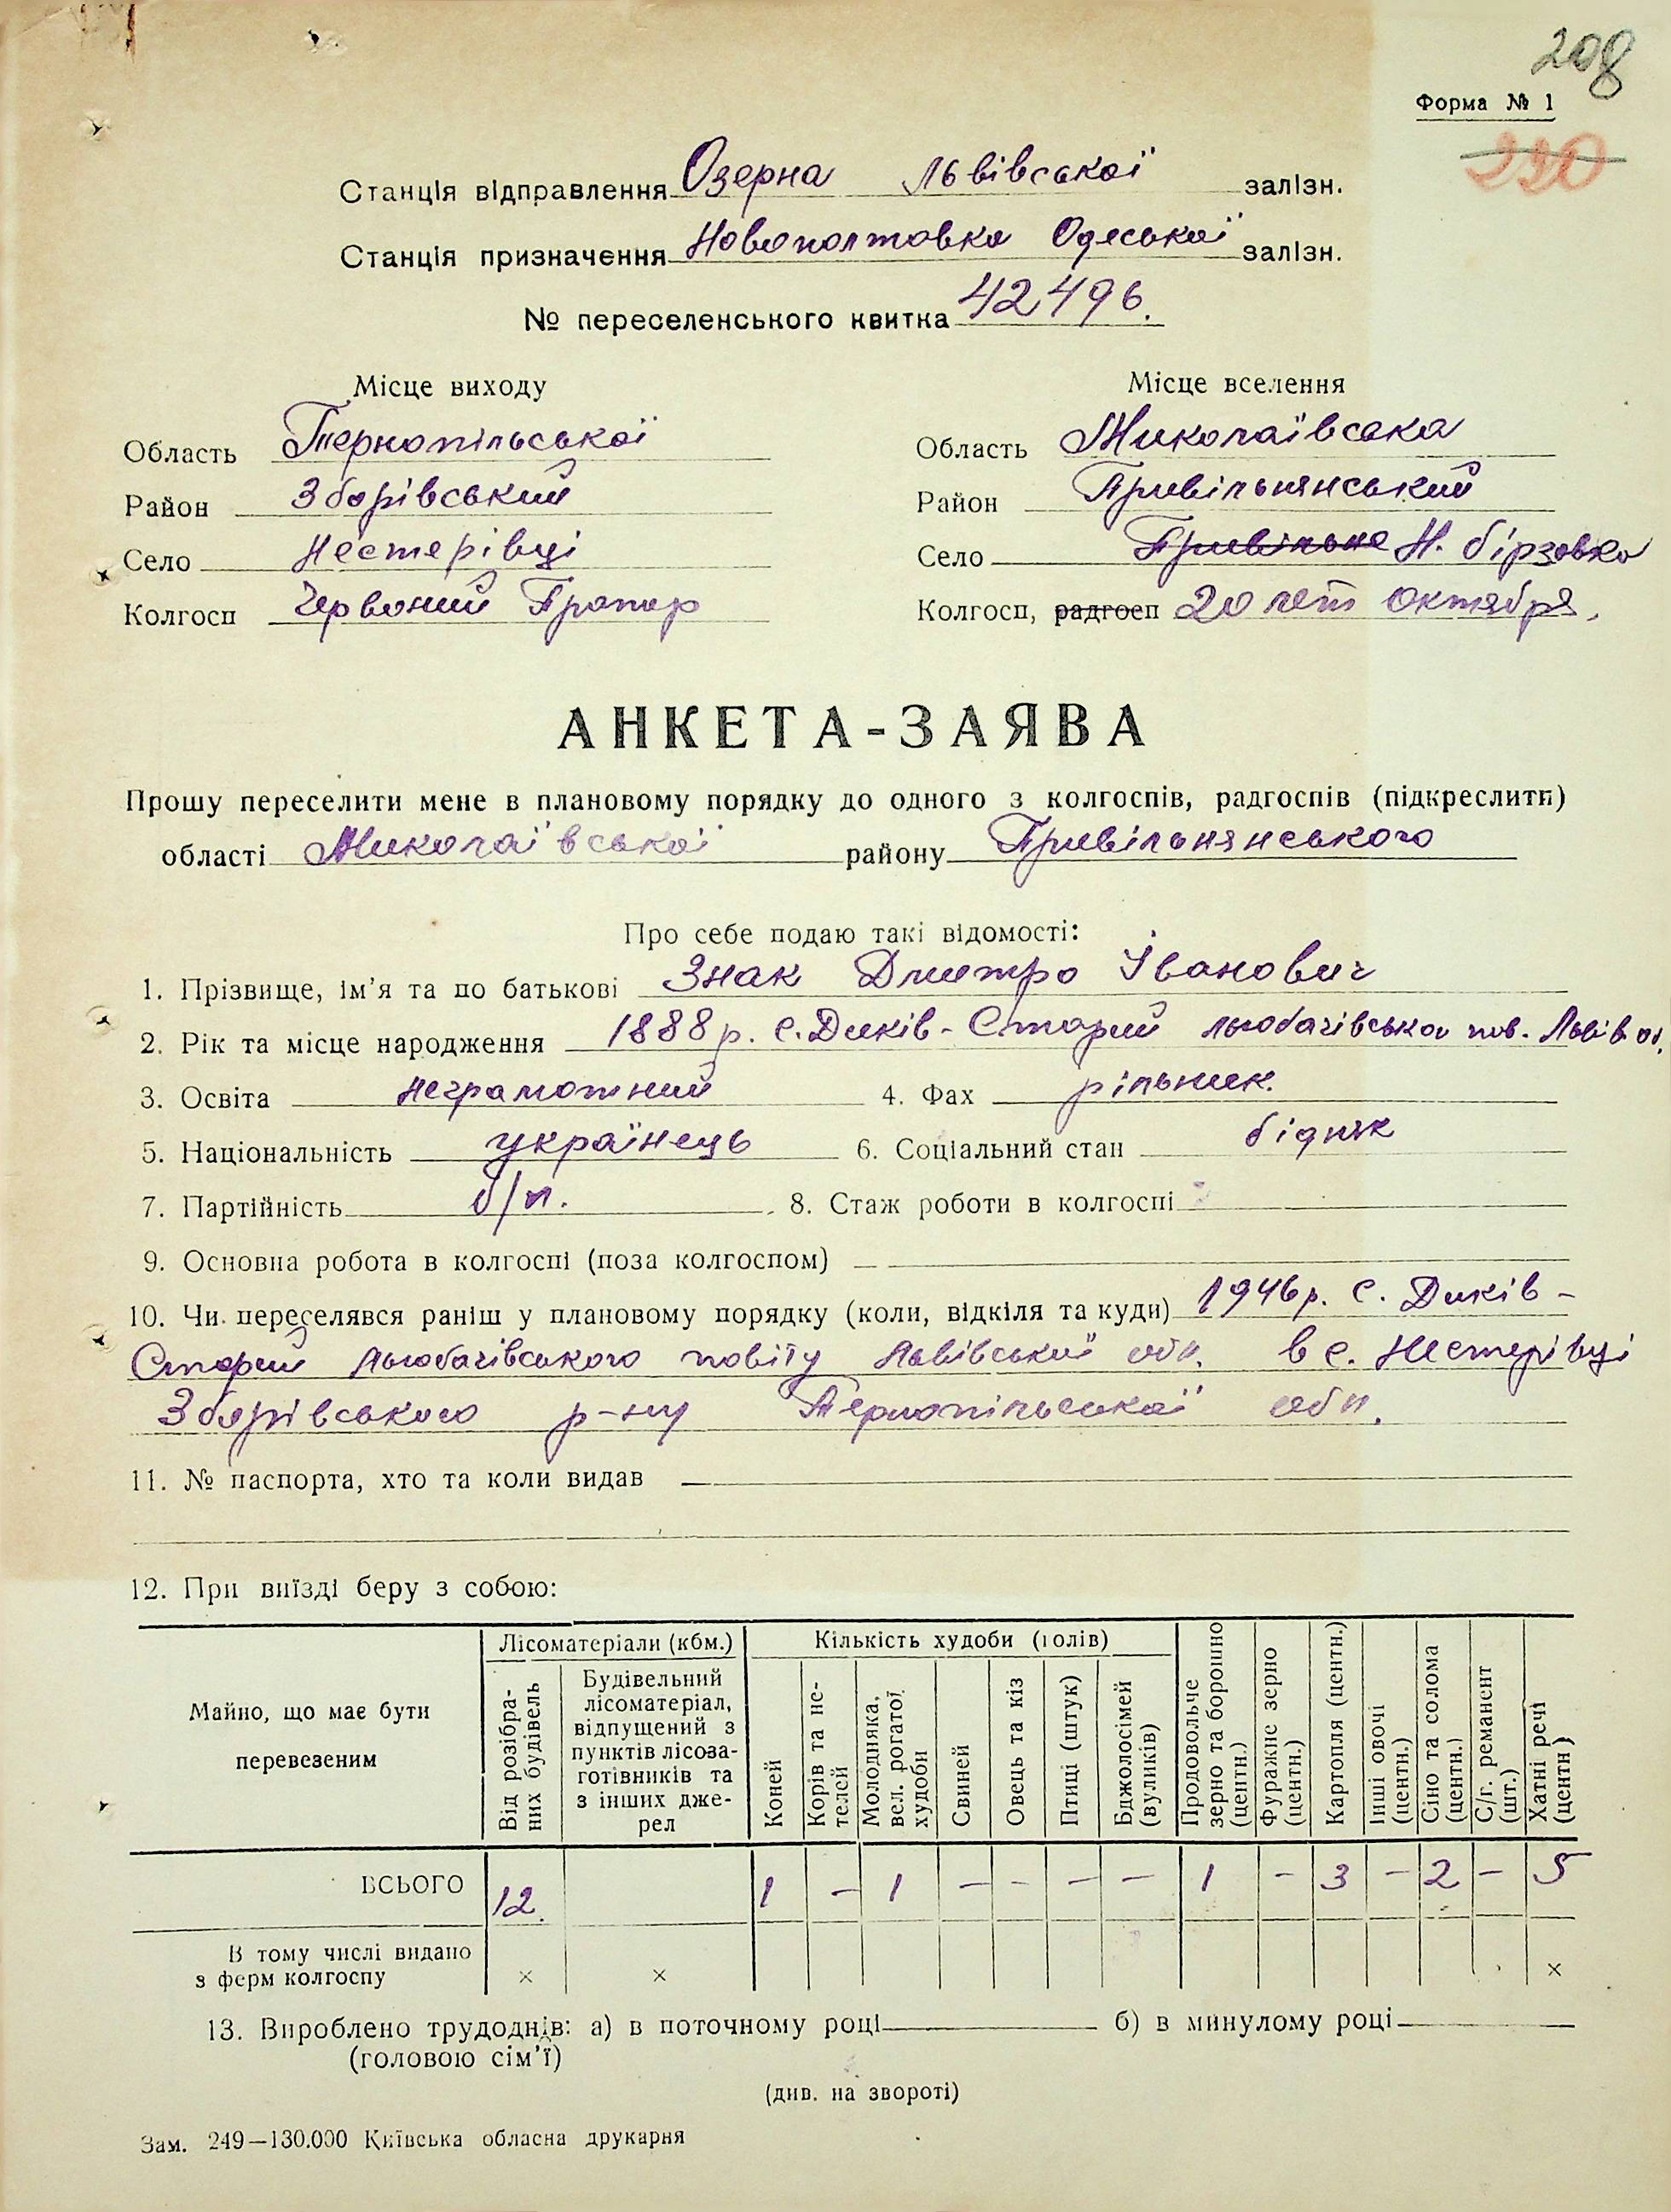 208
Форма № 1
230
Станція відправлення Озерна Львівської залізн.
Станція призначення Новополтовка Одеської залізн.
№ переселенського квитка 42496.
Місце виходу
Місце вселення
Область Тернопільської
Область Миколаївська
Район Зборівський
Район Привільнянський
Село Нестерівці
Село Привільне Н. бірзовка
Колгосп Червоний Прапор
Колгосп, радгосп 20 лет Октября.
АНКЕТА-ЗАЯВА
Прошу переселити мене в плановому порядку до одного з колгоспів, радгоспів (підкреслити)
області Миколаївської району Привільнянського
Про себе подаю такі відомості:
1. Прізвище, ім'я та по батькові Знак Дмитро Іванович
2. Рік та місце народження 1888 р. с. Диків-Старий Любачівська пов. Львів об.
3. Освіта неграмотний 4. Фах рільник.
5. Національність українець 6. Соціальний стан бідняк
7. Партійність б/п. 8. Стаж роботи в колгоспі
9. Основна робота в колгоспі (поза колгоспом) —
10. Чи переселявся раніш у плановому порядку (коли, відкіля та куди) 1946 р. с. Диків-
Старий Любачівського повіту Львівської обл. в с. Нестерівці
Зборівського р-ну Тернопільської обл.
11. № паспорта, хто та коли видав
12. При виїзді беру з собою:
Майно, що має бути перевезеним
Лісоматеріали (кбм.)
Кількість худоби (голів)
Від розібраних будівель
Будівельний лісоматеріал, відпущений з пунктів лісозаготівників та з інших джерел
Коней
Корів та нетелей
Молодняка, вел. рогатої худоби
Свиней
Овець та кіз
Птиці (штук)
Бджолосімей (вуликів)
Продовольче зерно та борошно (центн.)
Фуражне зерно (центн.)
Картопля (центн.)
Інші овочі (центн.)
Сіно та солома (центн.)
С/г. реманент (шт.)
Хатні речі (центн)
ВСЬОГО 12. 1 – 1 – – – – 1 – 3 – 2 – 5
В тому числі видано з ферм колгоспу × × ×
13. Вироблено трудоднів: а) в поточному році б) в минулому році
(головою сім'ї)
(див. на звороті)
Зам. 249—130.000 Київська обласна друкарня